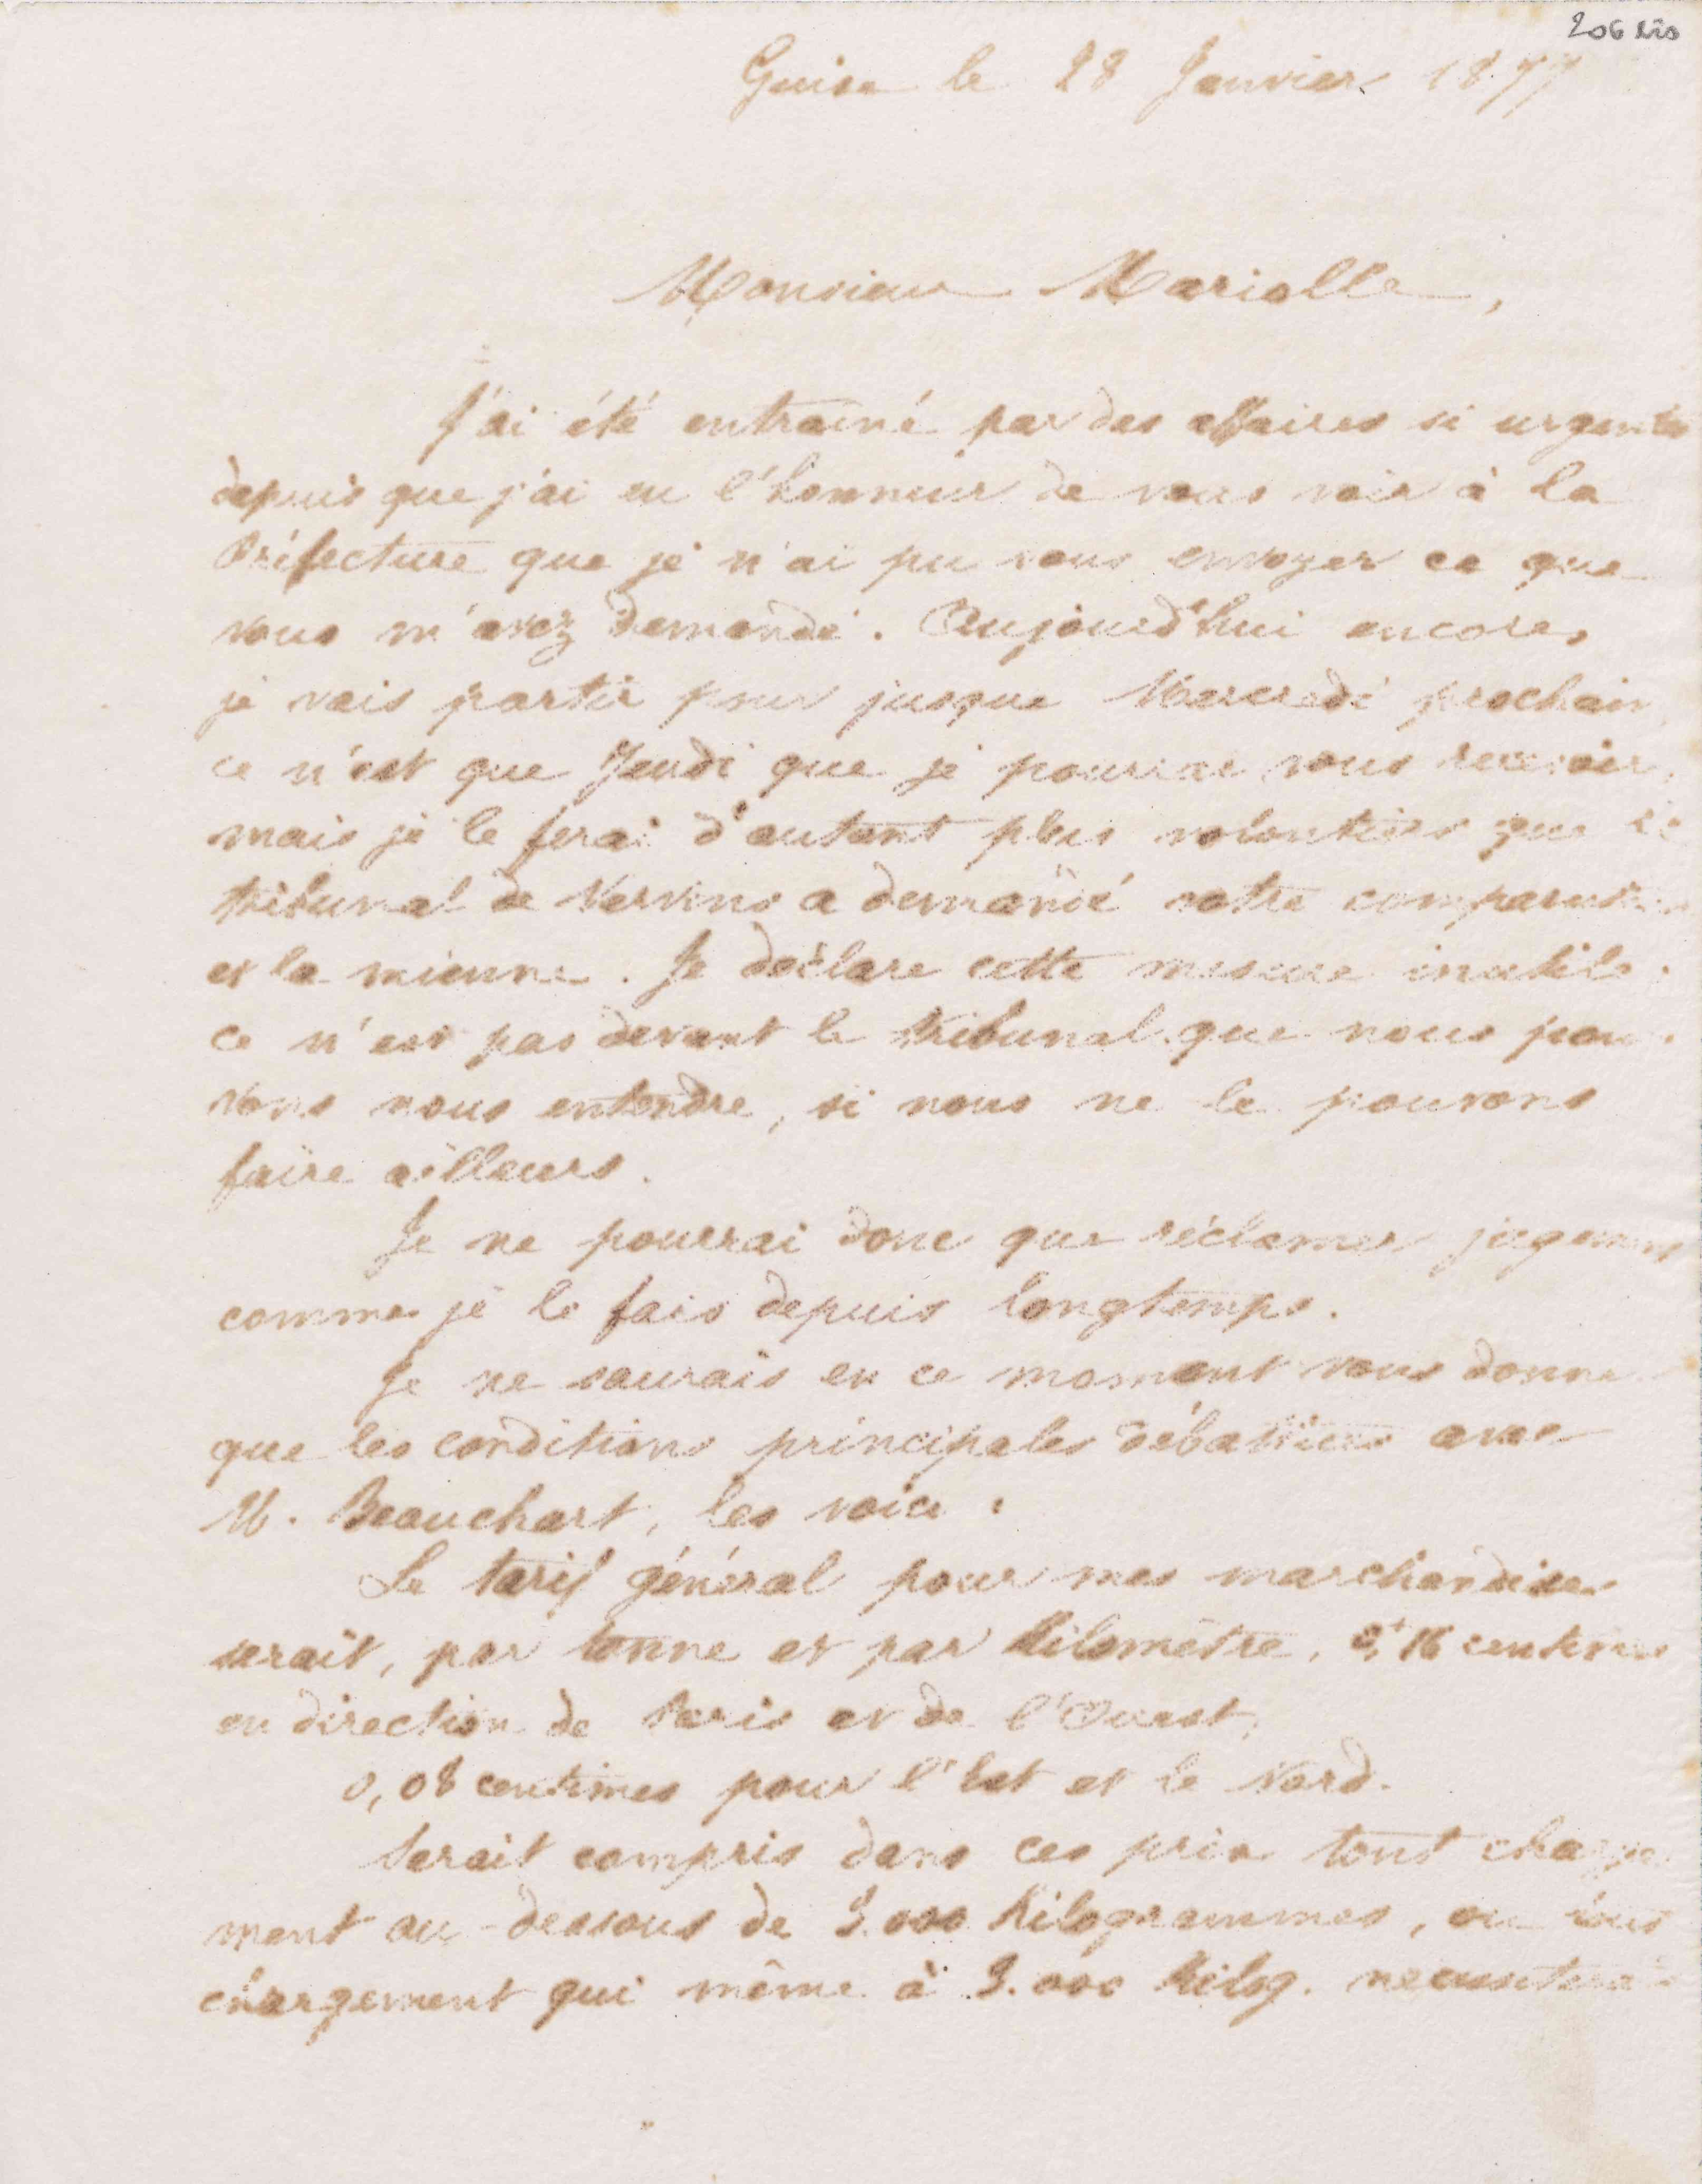 206 bis
Guise le 28 Janvier 1877
Monsieur Mariolle,
J'ai été entrainé par des affaires si urgentes
depuis que j'ai eu l'honneur de vous voir à la
Préfecture que je n'ai pu vous envoyer ce que
vous m'avez demandé. Aujourd'hui encore,
je vais partir pour jusque Mercredi prochain
ce n'est que Jeudi que je pourrai vous recevoir,
mais je le ferai d'autant plus volontiers que le
tribunal de Vervins a demandé votre comparution
et la mienne. Je déclare cette mesure inutile.
ce n'est pas devant le tribunal que nous pou-
vons nous entendre, si nous ne le pouvons
faire ailleurs.
Je ne pourrai donc que réclamer jugement
comme je le fais depuis longtemps.
Je ne saurais en ce moment vous donner
que les conditions principales débattues avec
M. Beauchart, les voici :
Le tarif général pour mes marchandises
serait, par tonne et par Kilomètre, 16 centimes
en direction de Paris et de l'Ouest,
0,08 centimes pour l'Est et le Nord.
Serait compris dans ces prix tout charge-
ment au-dessous de 3.000 Kilogrammes, ou tout
chargement qui même à 3.000 Kilog. necessiterait